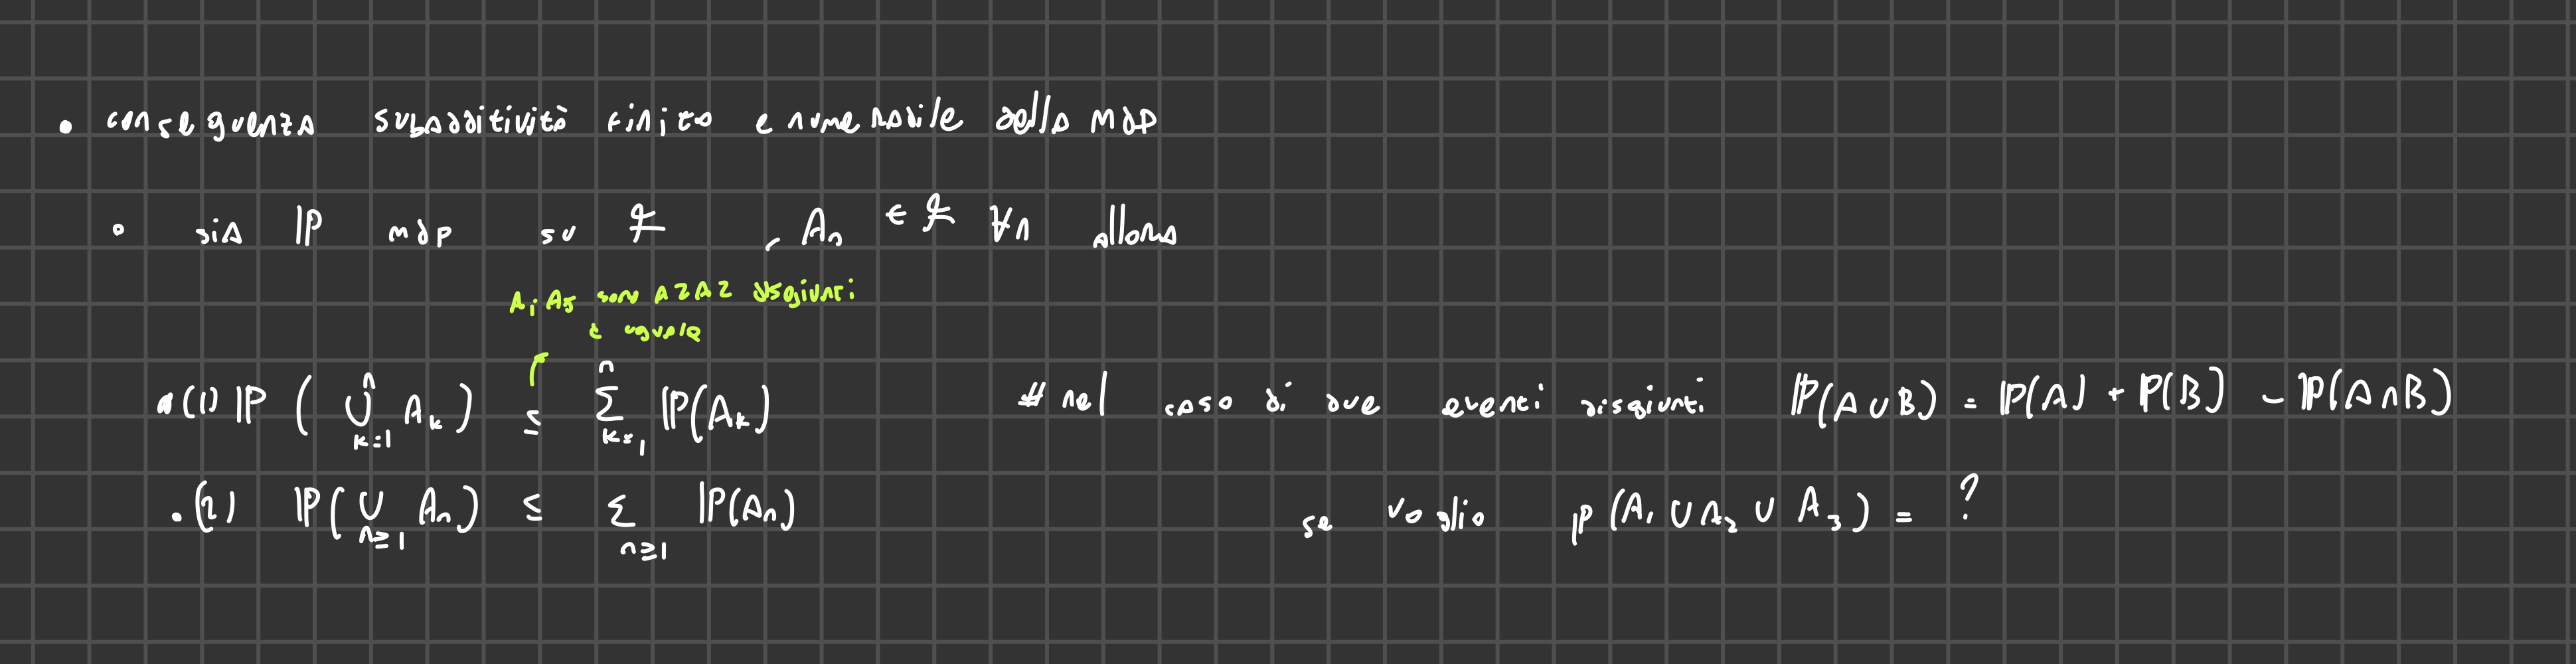 • conseguenza subadditività finita e numerabile della mdp
• sia ℙ mdp su ℱ , Aₙ ∈ ℱ ∀n allora
Aᵢ Aⱼ sono A2A2 disgiunti
è uguale
• (1) ℙ ( ⋃ₖ₌₁ⁿ Aₖ ) ≤ ∑ₖ₌₁ⁿ ℙ(Aₖ) # nel caso di due eventi disgiunti ℙ(A ∪ B) = ℙ(A) + ℙ(B) - ℙ(A ∩ B)
• (2) ℙ( ⋃ₙ≥₁ Aₙ ) ≤ ∑ₙ≥₁ ℙ(Aₙ) se voglio ℙ(A₁ ∪ A₂ ∪ A₃) = ?